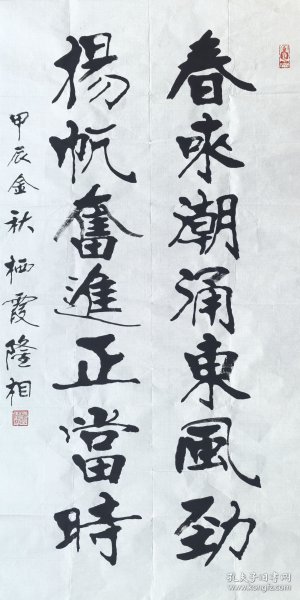 春來潮涌東風勁
揚帆奮進正當時
甲辰金秋栖霞隆相
孔夫子旧书网